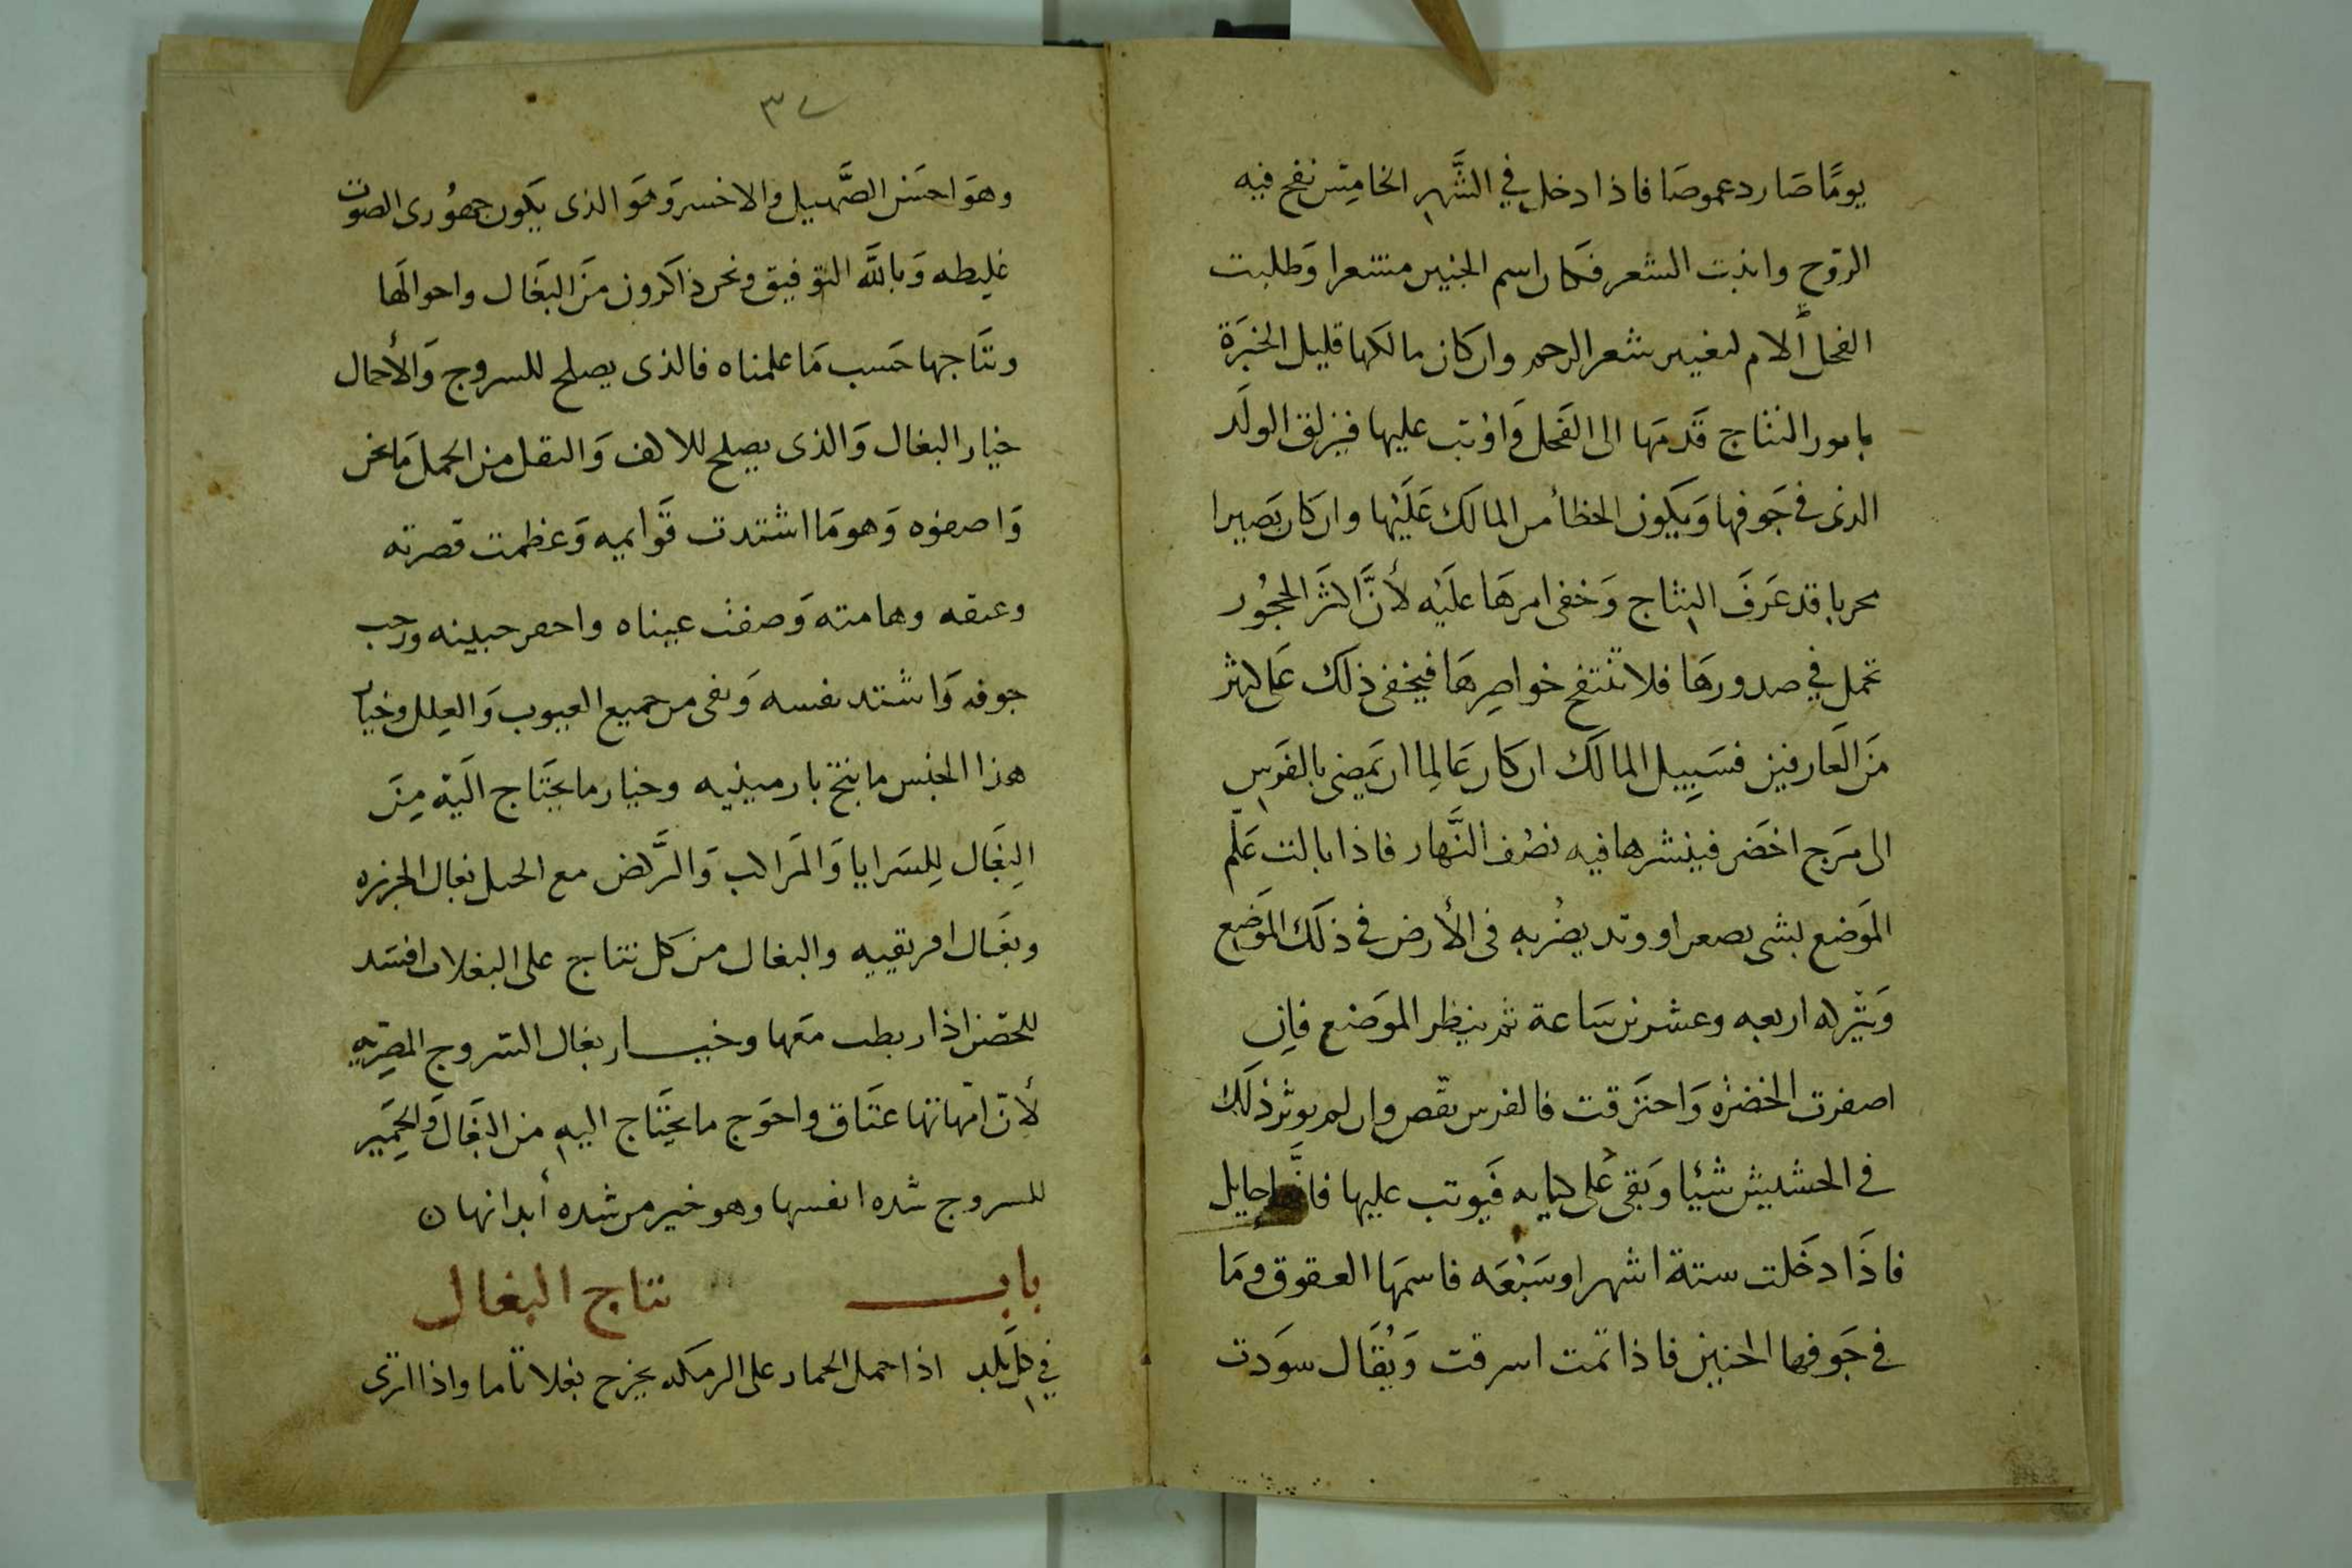 يومًا صَار دعموصَا فاذا دخل في الشَّهر الخامِس نفخ فيه
الروّح وانبت الشعر فكان اسم الجنين مشعرا وَطلبت
الفحل ألام لتغيير شعر الرحم وان كان مالكها قليل الخبَرة
بامور النتاج قَدمَها الى الفَحل وَاوْثب عليها فيزلق الولَد
الذى في جَوفها وَيكون الخطأ من المالك عَلَيْها وان كان بَصيرا
مجربا قد عَرَفَ النتاج وَخفى امرهَا علَيْه لأنَّ اكثَر الحجُور
تحمل في صدورهَا فلا تنتفخ خواصِرهَا فيخفى ذلك عَلى كثير
مَن العَارفين فسَبِيل المالك ان كان عَالِما ان يَمضى بالفَرس
الى مَرج اخضَر فينشرها فيه نصْف النَّهار فاذا بالت عَلّم
المَوضع بشى بصعر او وتد يضْربه فى الأرض في ذلك المَوضع
وَيتْركه اربعه وعشرين سَاعة ثم ينظر الموَضع فإن
اصفرت الخضرْه وَاحترَقت فالفرس نقّص وان لم يوثر ذلك
في الحشيش شيْا وَبقىَ عَلى كيانه فَيوثب عليها فانَّها حايل
فاذَا دَخَلت ستة اشهر او سَبْعَه فاسمهَا العقوق ومَا
في جَوفها الجنين فاذا تمت اسرقت وَيُقَال سوَدت
٣٧
وهوَ احسَن الصَّهيل والاخسر وَهوَ الذى يكَون جهوُرى الصَوت
غلِيظه وَباللَّه التوَفيق ونحن ذاكرون منَ البغَال واحوالهَا
ونتَاجها حَسب مَا علمناه فالذى يصلح للسروج وَالأحمال
خيار البغال وَالذى يصلح للاكف وَالثقل من الحمل مَا نحن
وَاصفوه وَهو مَا اشتدت قَوَايمه وَعظمت قصرته
وعنقه وهامته وَصفت عيناه واحفر جبينه ورحب
جوفه وَاشتد نفسه وَنقى من جميع العيوب وَالعِلل وخيار
هذا الجنس ما ينتج بارمينيه وخيار ما يحتَاج اليَه مِنَ
البِغَال لِلسَرايا وَالمَراكب وَالرَّكض مع الخيل بغال الجزيره
وبغَال افريقيه والبغال من كل نتاج على البغلات افسَد
للحصَن اذا ربطت معَها وخيـــار بغال السّروج المصِريه
لأنّ امّهاتها عتَاق واحوَج ما يحتَاج اليه من البغَال وَالحَمِير
للسروج شده انفسها وهو خير من شده أبدانها ن
بابـــــ نتاج البغال
في كلّ بلَد اذا حمل الحمار على الرمَكه يخرج بغلا تاما واذا انزى